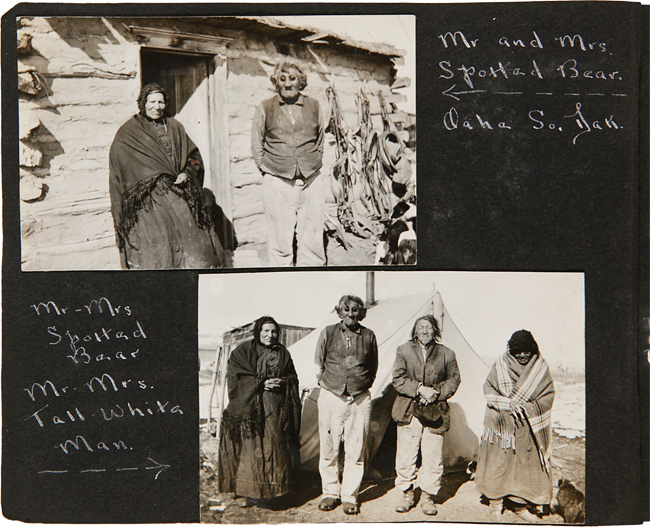 Mr and Mrs.
Spotted Bear.
Oaha So. Dak.
Mr-Mrs
Spotted
Bear
Mr-Mrs.
Tall-White
Man.